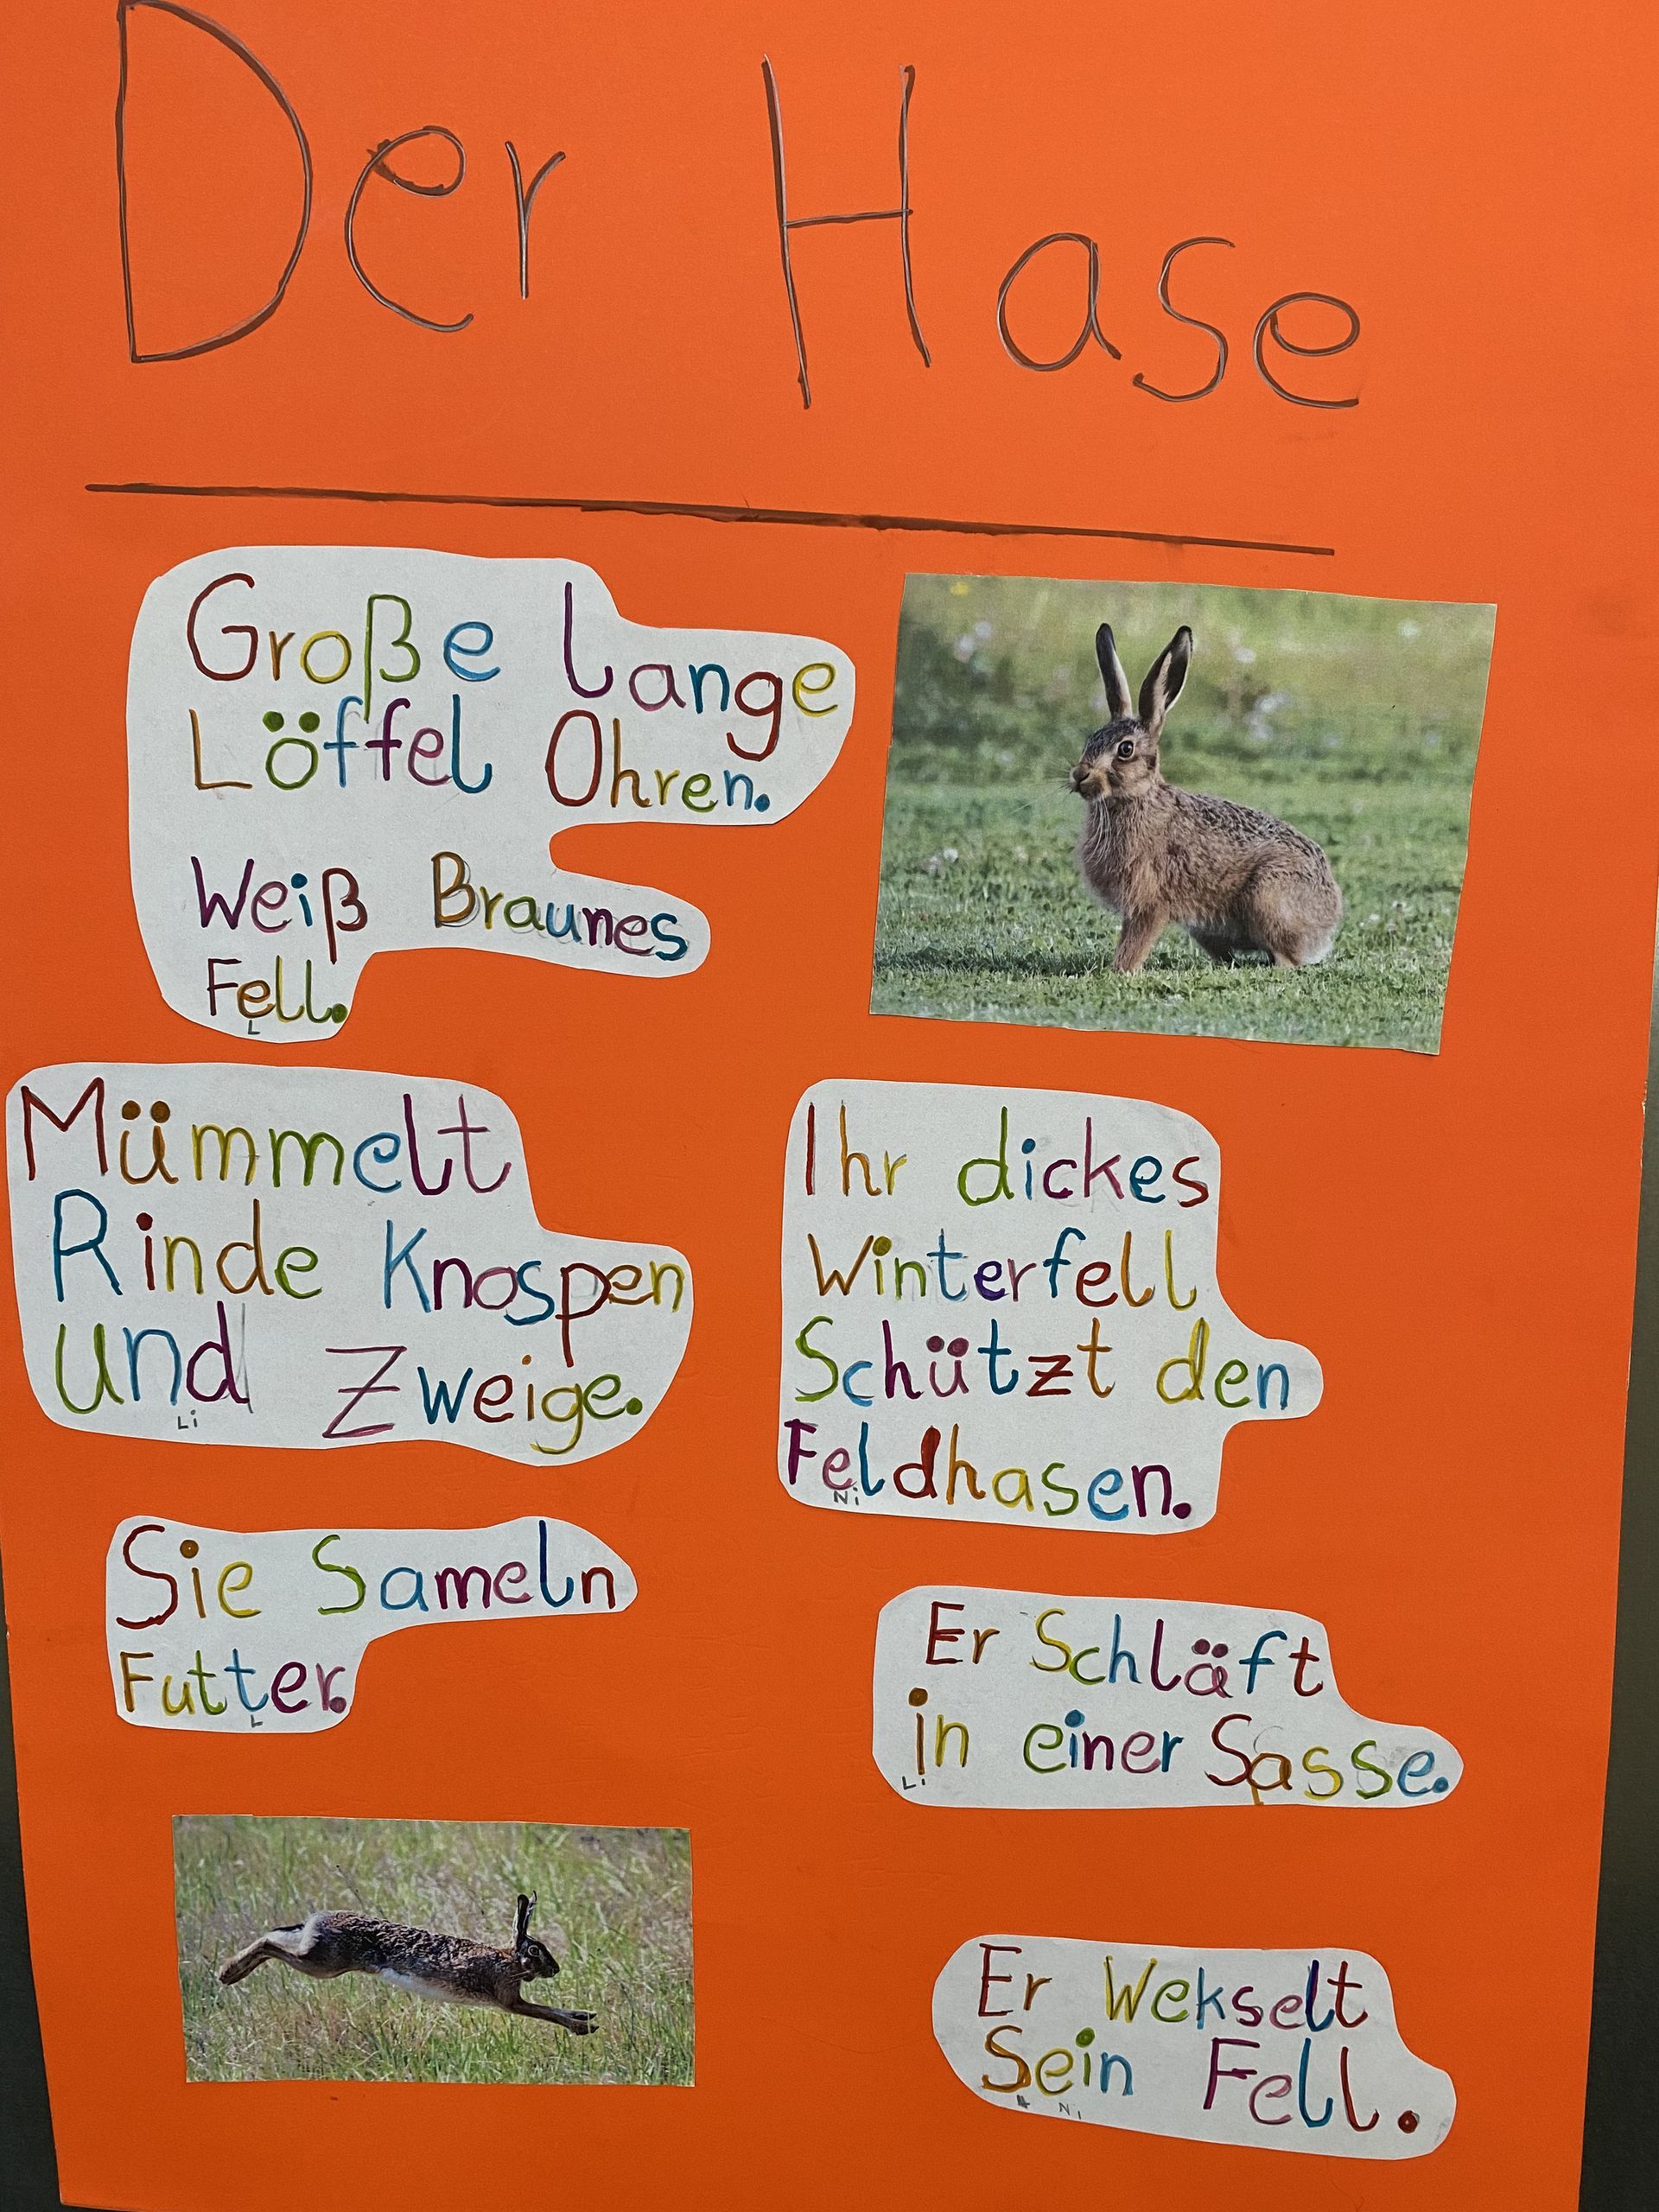 Der Hase
Große lange
Löffel Ohren.
Weiß Braunes
Fell.
L
Mümmelt
Rinde Knospen
und Zweige.
Li
Ihr dickes
Winterfell
Schützt den
Feldhasen.
Ni
Sie Sameln
Futter.
L
Er Schläft
in einer Sasse.
Li
Er Wekselt
Sein Fell.
Ni